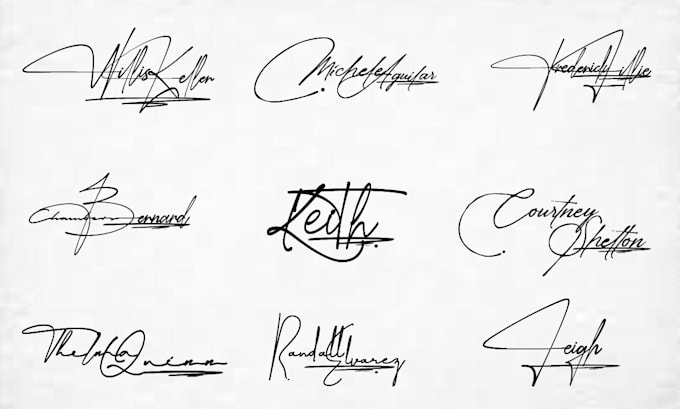 Willis Keller
Michele Aguilar
Frederick Gillie
Chambers Bernard
Keith
Courtney
Shelton
Thelma Quinn
Randall Alvarez
Leigh